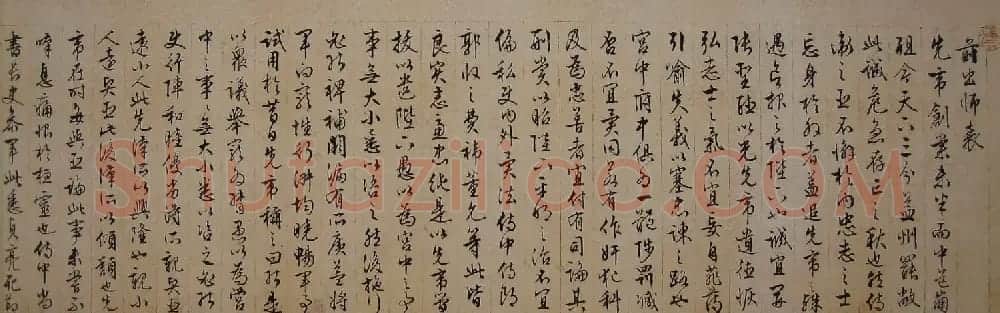 前出師表
先帝創業未半而中道崩
殂今天下三分益州罷敝
此誠危急存亡之秋也然侍
衛之臣不懈於內忠志之士
忘身於外者蓋追先帝之殊
遇欲報之於陛下也誠宜開
張聖聽以光先帝遺德恢
弘志士之氣不宜妄自菲薄
引喻失義以塞忠諫之路也
宮中府中俱為一體陟罰臧
否不宜異同若有作奸犯科
及為忠善者宜付有司論其
刑賞以昭陛下平明之治不宜
偏私使內外異法侍中侍郎
郭攸之費禕董允等此皆
良實志慮忠純是以先帝簡
拔以遺陛下愚以為宮中之事
事無大小悉以咨之然後施行
必能裨補闕漏有所廣益將
軍向寵性行淑均曉暢軍事
試用於昔日先帝稱之曰能是
以眾議舉寵為督愚以為營
中之事〻無大小悉以咨之必能
使行陣和睦優劣得所親賢臣
遠小人此先漢所以興隆也親小
人遠賢臣此後漢所以傾頹也先
帝在時每與臣論此事未嘗不
嘆息痛恨於桓靈也侍中尚
書長史參軍此悉貞亮死節
Shufaziliao.com